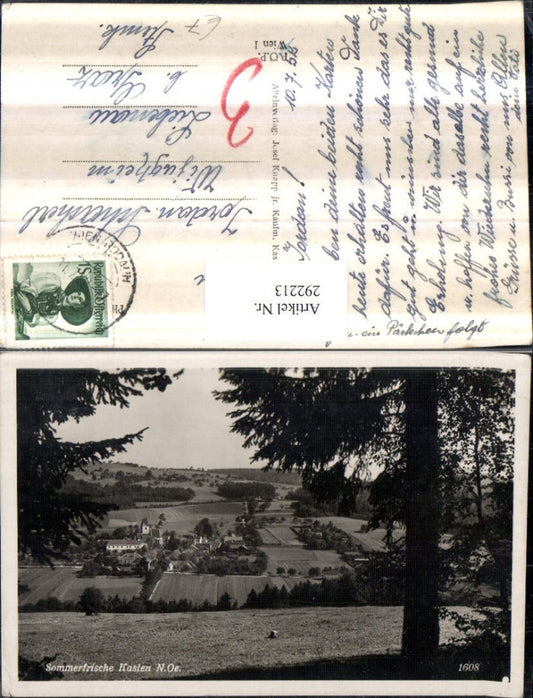 10.7.55
Jordan!
ben deine beiden Karten
heute erhalten recht schönen Dank
dafür. Es freut uns sehr, das es Dir
gut geht u. wünschen nur recht gute
Erholung. Wir sind alle gesund
u. hoffen von dir dasselbe auf ein
frohes Wiedersehen recht herzliche
Grüsse u. Bussi von uns Allen
ein Päckchen folgt
P.O.P.
Wien I
Alleinverlag: Josef Knapp jr. Kaufm. Kas
3
Jordan
Liebenau
b. Graz
Stmk.
Artikel Nr.
292213
Sommerfrische Kasten N.Oe.
1608